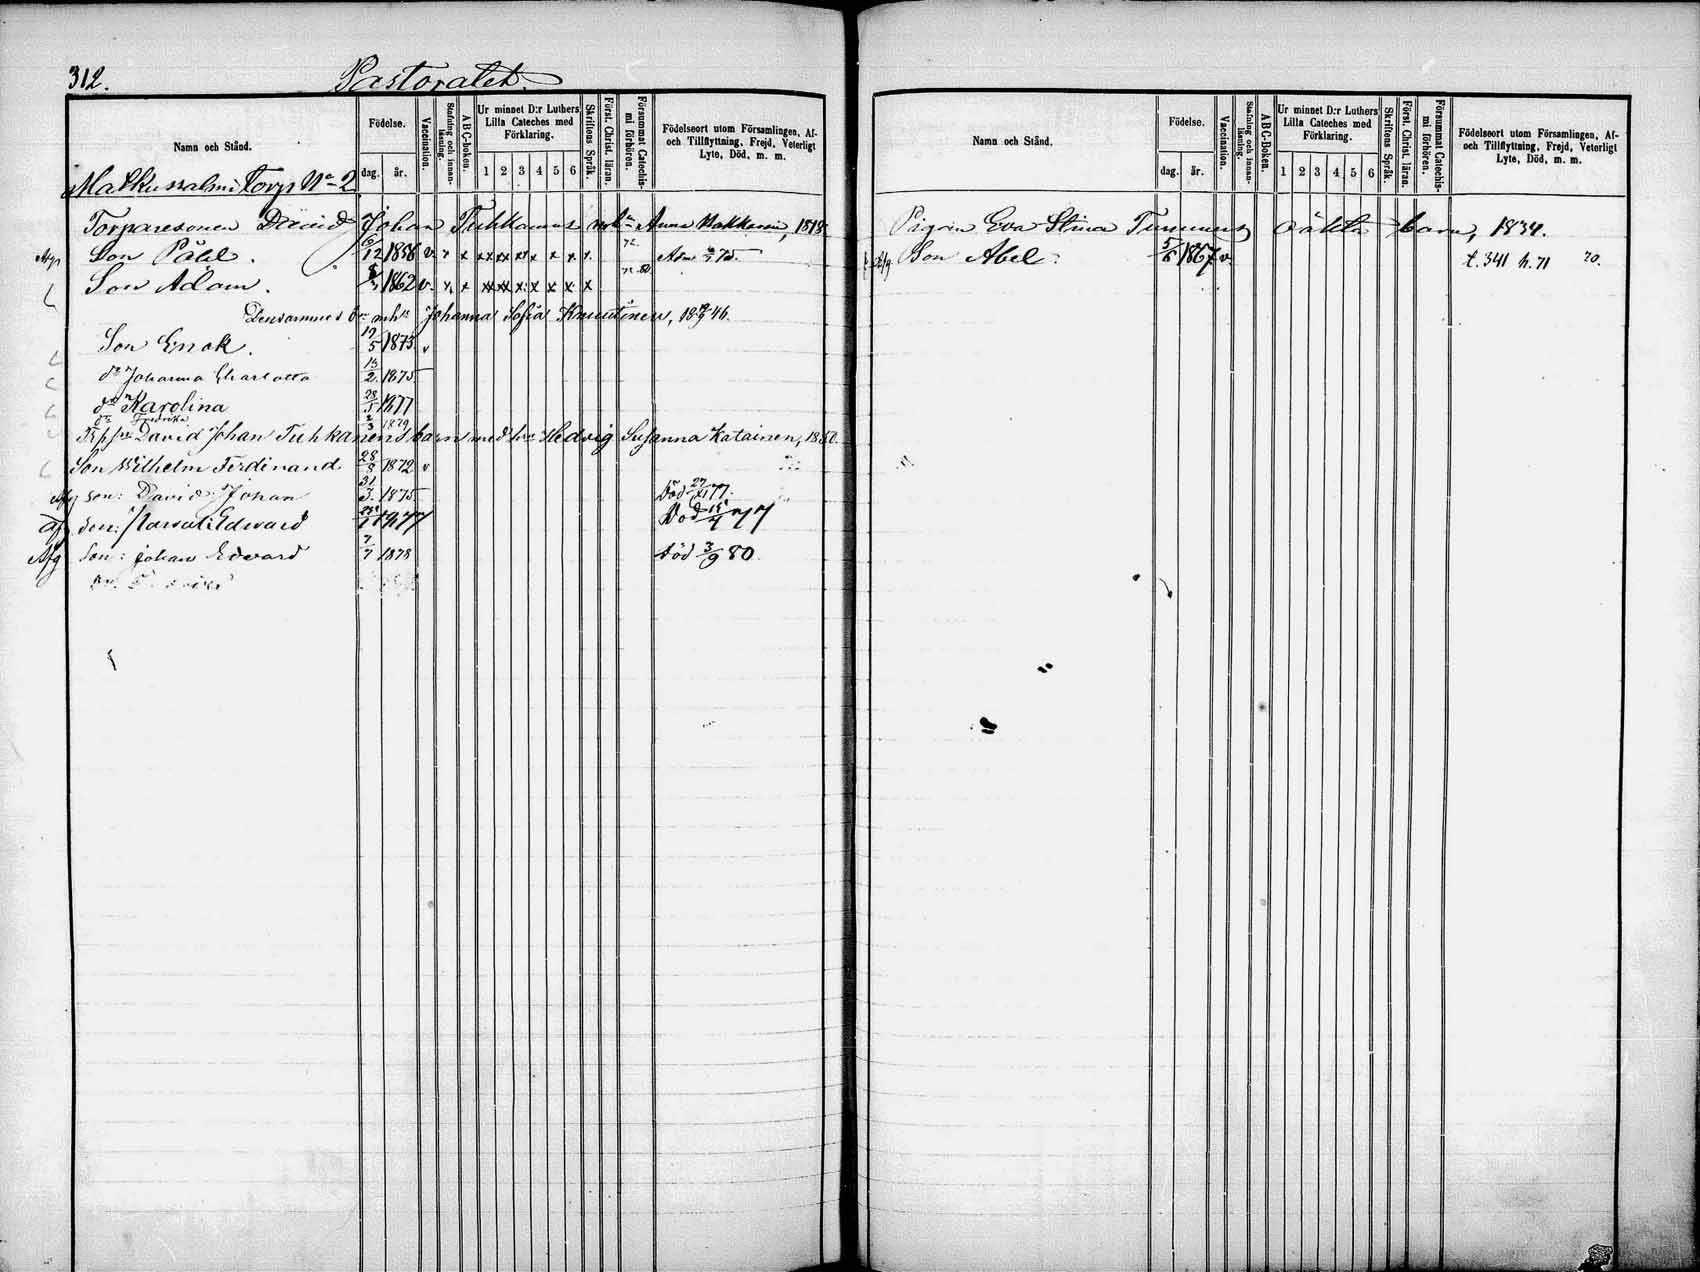 312.
Pastoratet.
Namn och Stånd.
Födelse.
dag. år.
Vaccination.
Stafning och innanläsning.
ABC-boken.
Ur minnet D:r Luthers Lilla Cateches med Förklaring.
1 2 3 4 5 6
Skriftens Språk.
Först. Christ. läran.
Försummat Catechismi förhören.
Födelseort utom Församlingen, Af- och Tillflyttning, Frejd, Veterligt Lyte, Död, m. m.
Torp No 2
Torparesonen David Johan Tuhkanens Anna Makkonen, 1818.
Son Påhl. 12 1856 v. x x xx xx x x x x x. 72. Adm 75.
Son Adam. 1862 v. x x xx xx x x x x x
Densammes Johanna Sofia Knuutinen, 46.
Son Enok. 19/5 1873 v
dr Johanna Charlotta 13/2 1875
dr Karolina 28/5 1877
dr Fredrika 2/3 1879
David Johan Tuhkanens barn med Hedvig Susanna Katainen, 1850.
Son Wilhelm Ferdinand 28/8 1872 v
Afg son: David Johan 31/3 1875 Död 77.
Afg son: Edward 1877 Död 77
Afg Son: Johan Edward 7/7 1878 död 3/9 80.
Namn och Stånd.
Födelse.
dag. år.
Vaccination.
Stafning och innanläsning.
ABC-Boken.
Ur minnet D:r Luthers Lilla Cateches med Förklaring.
1 2 3 4 5 6
Skriftens Språk.
Först. Christ. läran.
Försummat Catechismi förhören.
Födelseort utom Församlingen, Af- och Tillflyttning, Frejd, Veterligt Lyte, Död, m. m.
Pigan Eva Stina oäkta barn, 1834.
Afg Son Abel. 5/6 1867 v. t. 341 h. 71 70.